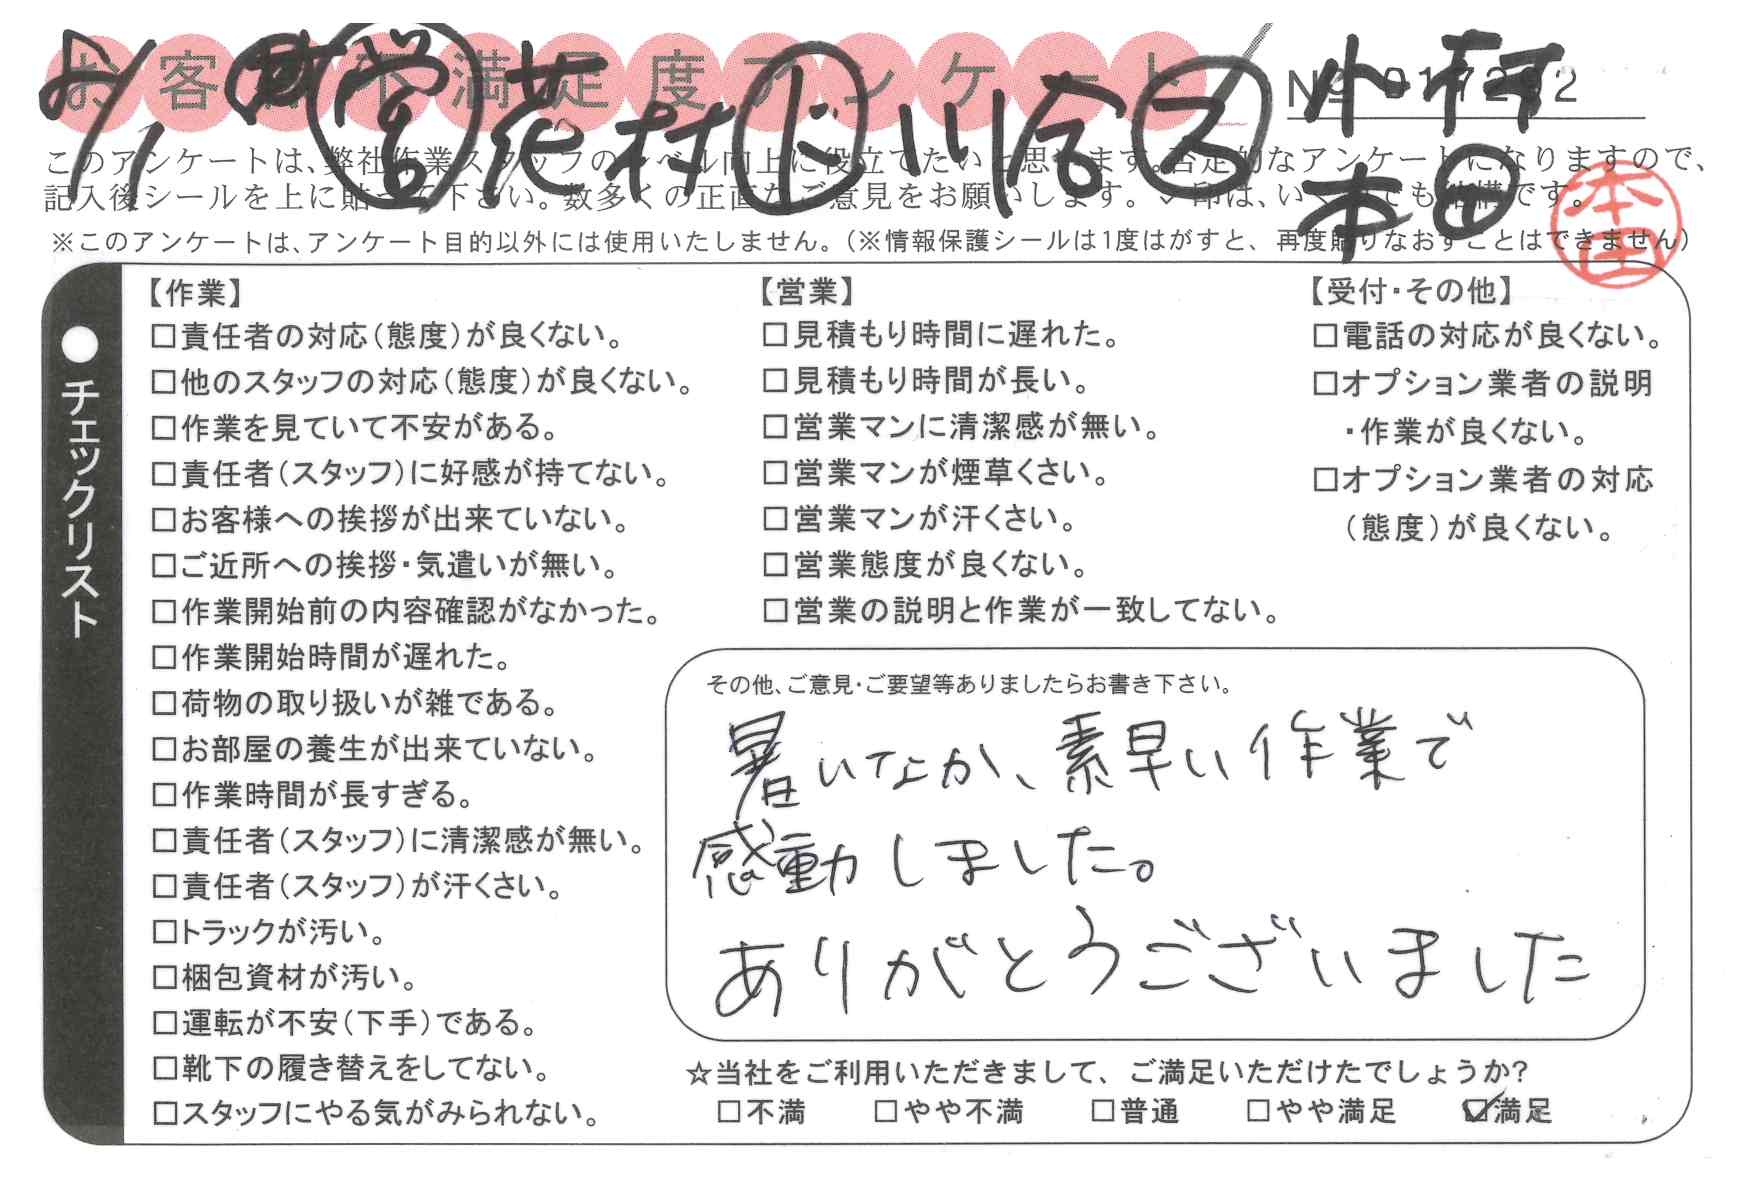 お客様不満足度アンケート
8/1 営 花村 ド 川合 フ 小林
本田
本田
このアンケートは、弊社作業スタッフのレベル向上に役立てたいと思います。否定的なアンケートになりますので、
記入後シールを上に貼って下さい。数多くの正直なご意見をお願いします。✓印は、いくつでも結構です。
※このアンケートは、アンケート目的以外には使用いたしません。(※情報保護シールは1度はがすと、再度貼りなおすことはできません)
●チェックリスト
【作業】
□責任者の対応(態度)が良くない。
□他のスタッフの対応(態度)が良くない。
□作業を見ていて不安がある。
□責任者(スタッフ)に好感が持てない。
□お客様への挨拶が出来ていない。
□ご近所への挨拶・気遣いが無い。
□作業開始前の内容確認がなかった。
□作業開始時間が遅れた。
□荷物の取り扱いが雑である。
□お部屋の養生が出来ていない。
□作業時間が長すぎる。
□責任者(スタッフ)に清潔感が無い。
□責任者(スタッフ)が汗くさい。
□トラックが汚い。
□梱包資材が汚い。
□運転が不安(下手)である。
□靴下の履き替えをしてない。
□スタッフにやる気がみられない。
【営業】
□見積もり時間に遅れた。
□見積もり時間が長い。
□営業マンに清潔感が無い。
□営業マンが煙草くさい。
□営業マンが汗くさい。
□営業態度が良くない。
□営業の説明と作業が一致してない。
【受付・その他】
□電話の対応が良くない。
□オプション業者の説明
・作業が良くない。
□オプション業者の対応
(態度)が良くない。
その他、ご意見・ご要望等ありましたらお書き下さい。
暑いなか、素早い作業で
感動しました。
ありがとうございました
☆当社をご利用いただきまして、ご満足いただけたでしょうか?
□不満 □やや不満 □普通 □やや満足 ☑満足